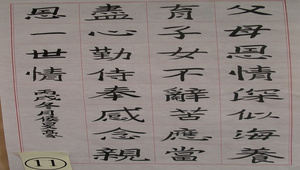 父母恩情深似海養
育子女不辭苦應當
盡心勤侍奉感念親
恩一世情
丙戌冬月
11